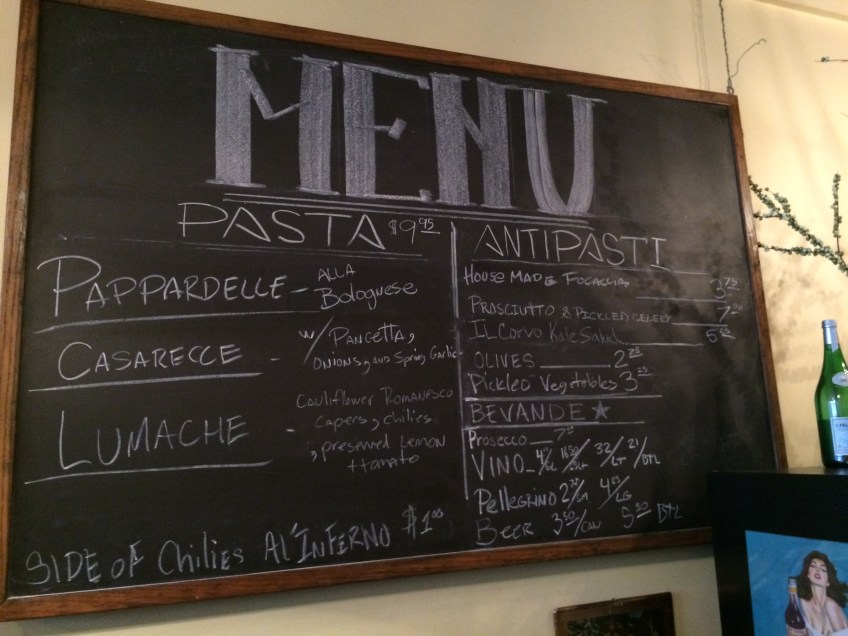 MENU
PASTA $9.95
PAPPARDELLE - ALLA
Bolognese
CASARECCE - w/ PANCETTA,
ONIONS, AND Spring Garlic
LUMACHE - Cauliflower ROMANESCO
CAPERS, chilies
, preserved Lemon
+ tomato
SIDE OF Chilies Al'INFERNO $1.00
ANTIPASTI
HOUSE MADE FOCACCIA
PROSCIUTTO & PICKLED CELERY 7.00
IL CORVO Kale Salad
OLIVES 2.25
Pickled Vegetables 3.25
BEVANDE ★
Prosecco
VINO 32/LT 21/BTL
Pellegrino /LG
BEER 3.50/CAN 5.50 BTL